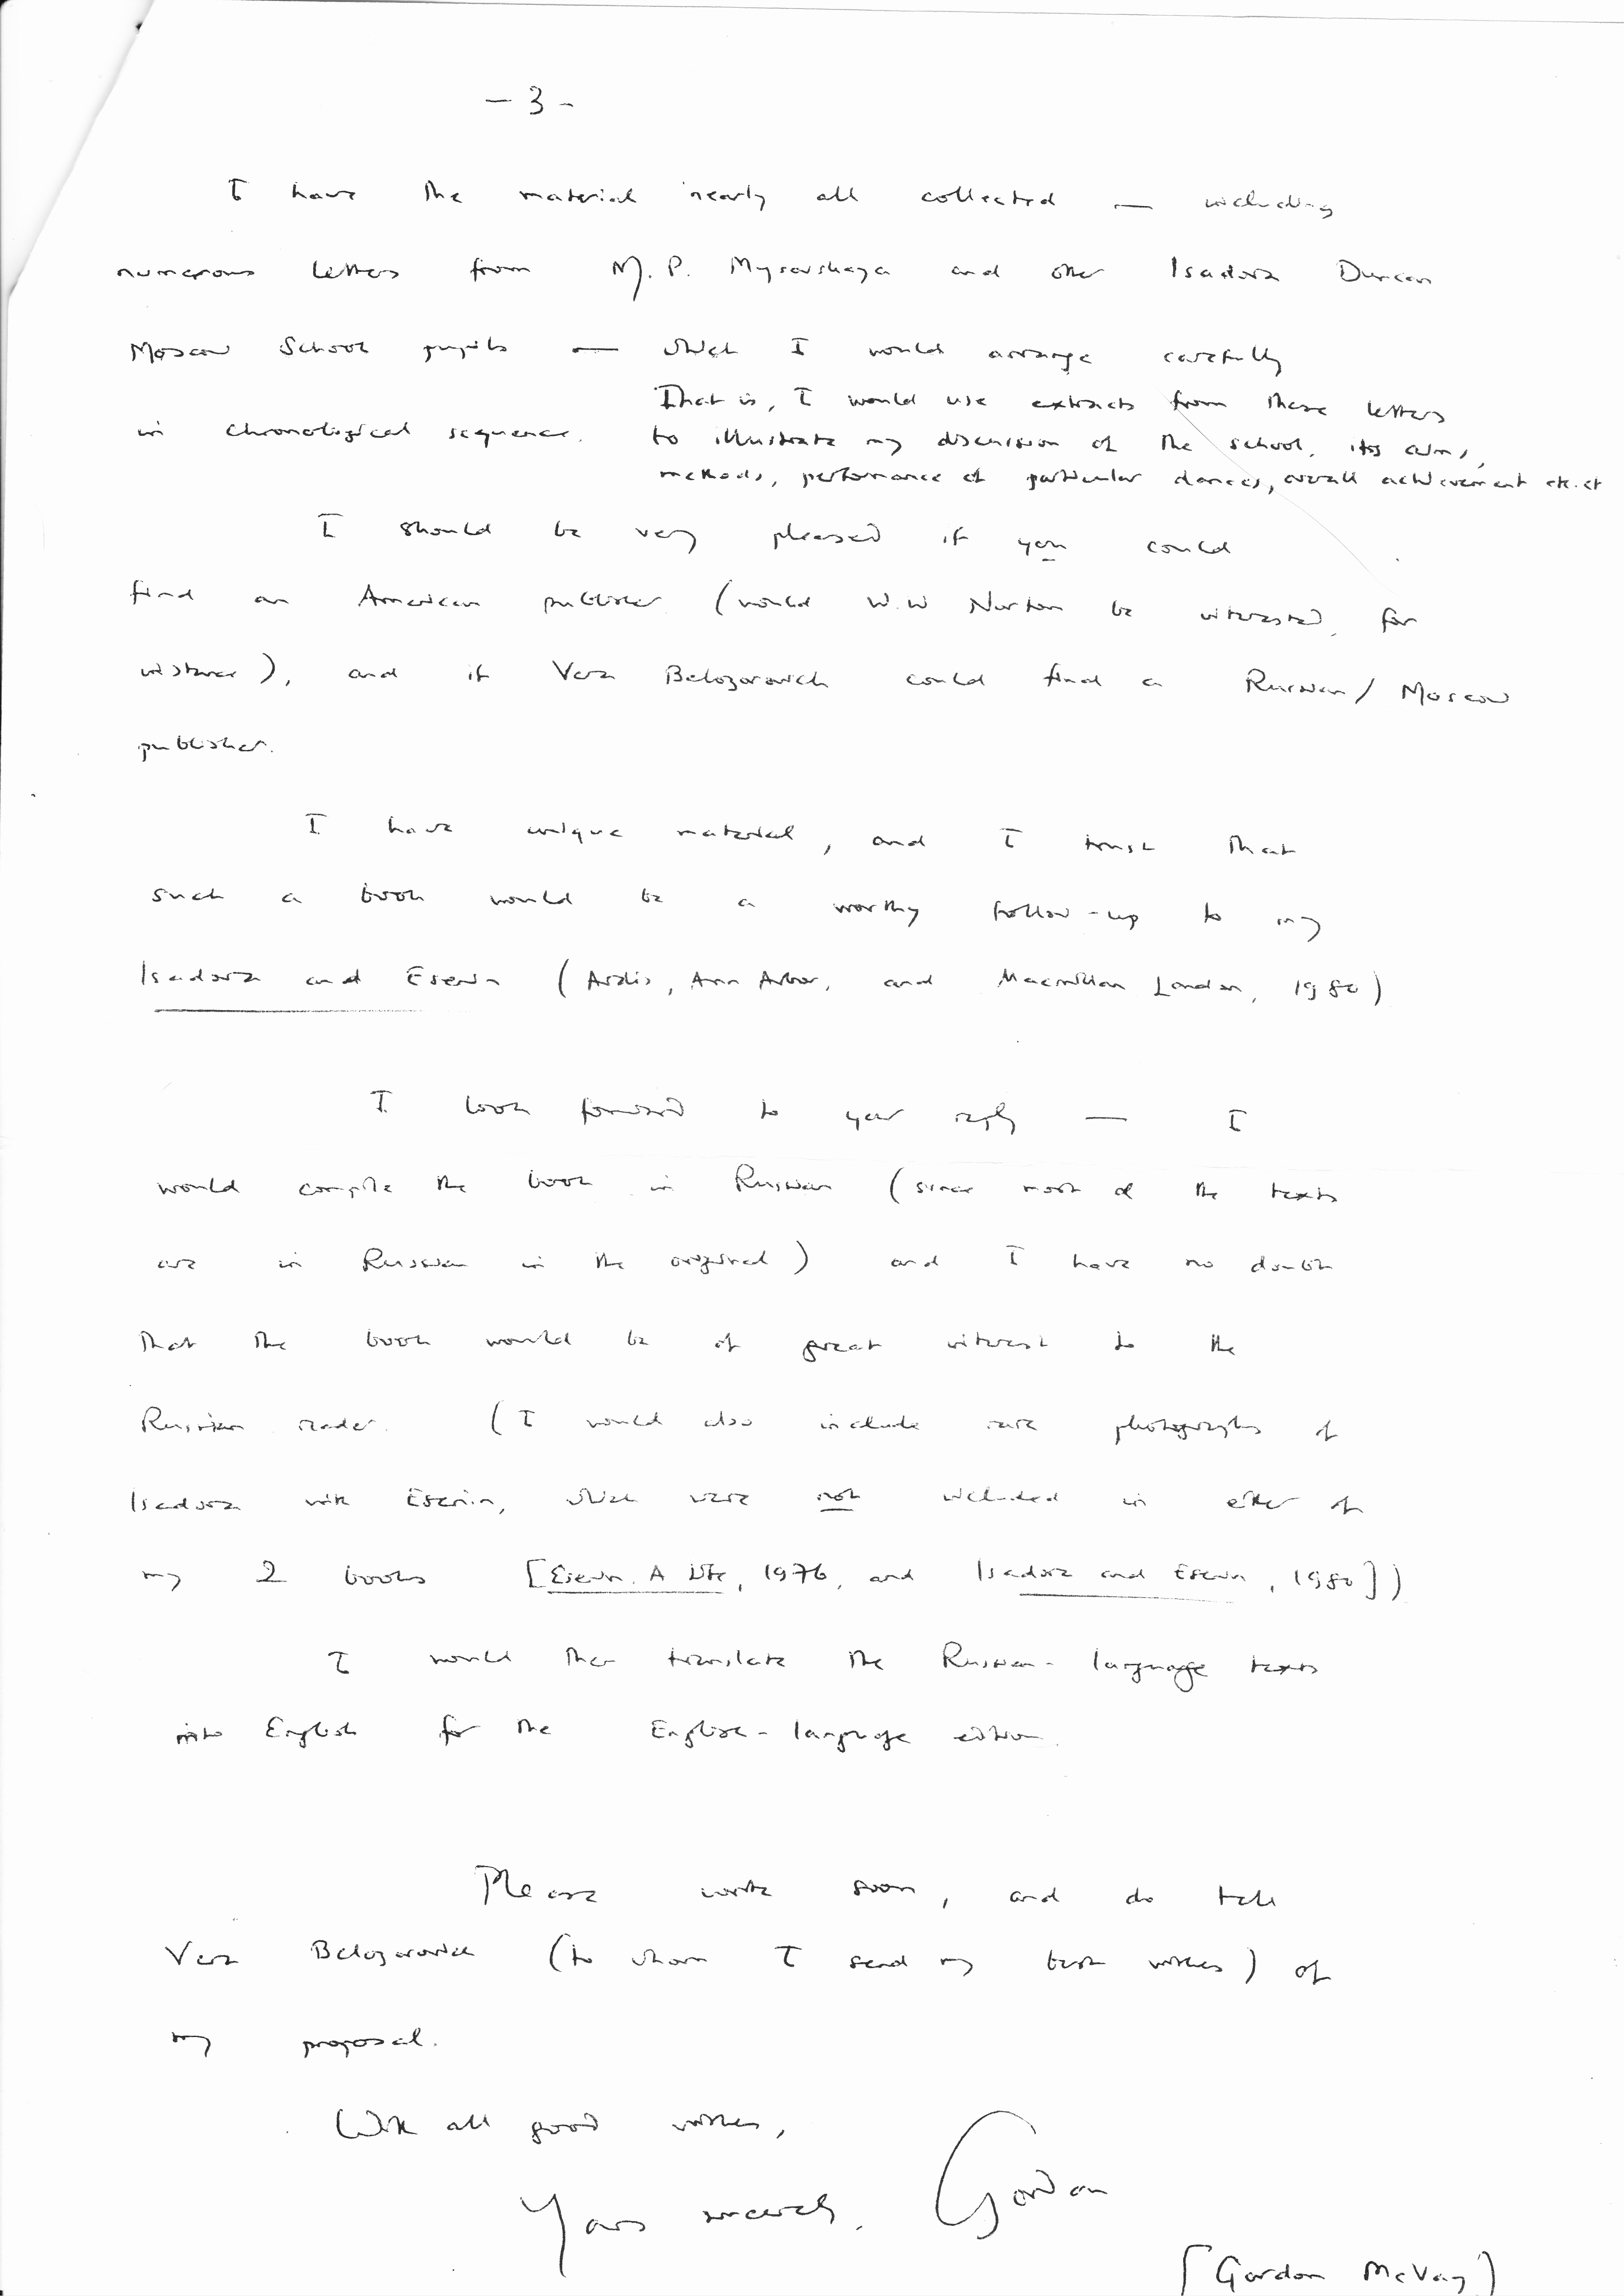 - 3 -
I have the material nearly all collected — including
numerous letters from M. P. Mysovskaya and other Isadora Duncan
Moscow School pupils — which I would arrange carefully
in chronological sequence. That is, I would use extracts from these letters
to illustrate my discussion of the school, its aims,
methods, performance of particular dances, overall achievement etc. etc
I should be very pleased if you could
find an American publisher (would W.W Norton be interested, for
instance), and if Vera Belozorovich could find a Russian / Moscow
publisher.
I have unique material, and I trust that
such a book would be a worthy follow-up to my
Isadora and Esenin (Ardis, Ann Arbor, and Macmillan London, 1980)
I look forward to your reply — I
would compile the book in Russian (since most of the texts
are in Russian in the original) and I have no doubt
that the book would be of great interest to the
Russian reader. (I would also include rare photographs of
Isadora with Esenin, which were not included in either of
my 2 books [Esenin. A Life, 1976, and Isadora and Esenin, 1980])
I would then translate the Russian-language texts
into English for the English-language edition.
Please write soon, and do tell
Vera Belozorovich (to whom I send my best wishes) of
my proposal.
With all good wishes,
Yours sincerely, Gordon
[Gordon McVay]